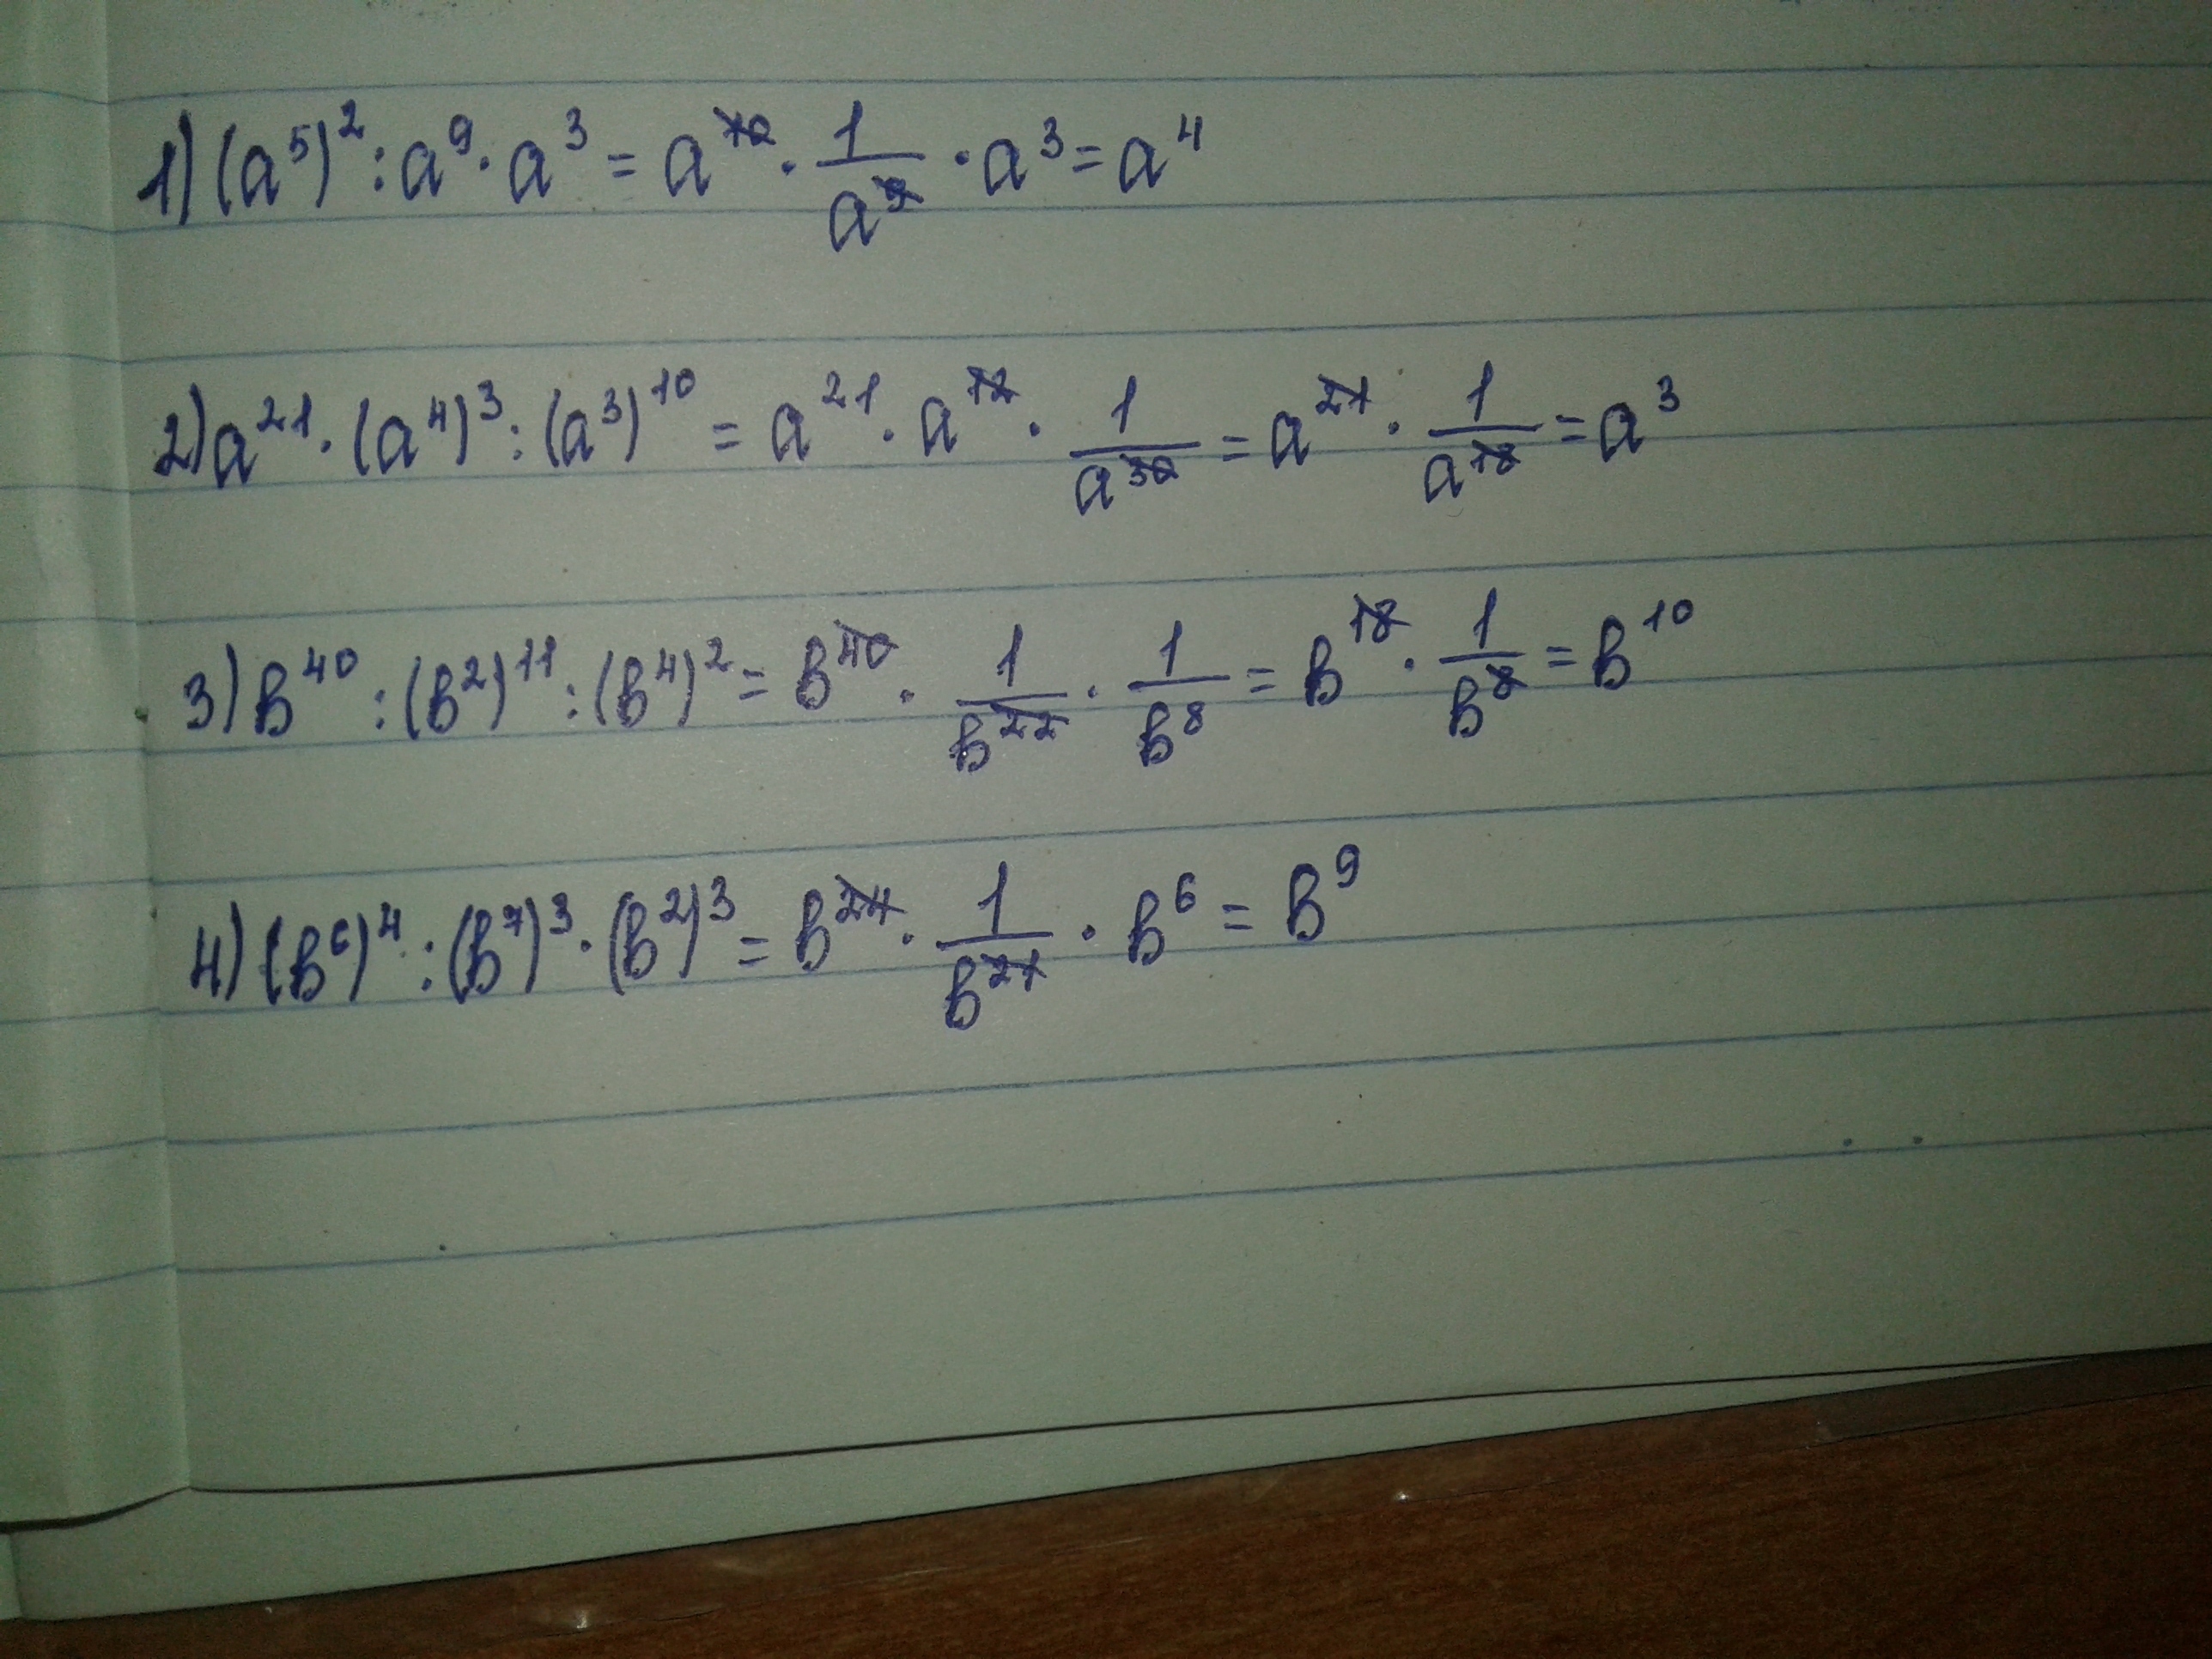 1) (a⁵)² : a⁹ · a³ = a¹⁰ · 1/a⁹ · a³ = a⁴
2) a²¹ · (a⁴)³ : (a³)¹⁰ = a²¹ · a¹² · 1/a³⁰ = a²¹ · 1/a¹⁸ = a³
3) в⁴⁰ : (в²)¹¹ : (в⁴)² = в⁴⁰ · 1/в²² · 1/в⁸ = в¹⁸ · 1/в⁸ = в¹⁰
4) (в⁶)⁴ : (в⁷)³ · (в²)³ = в²⁴ · 1/в²¹ · в⁶ = в⁹